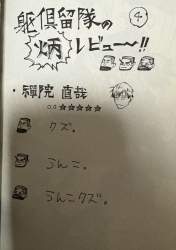 ④
躯倶留隊の
炳レビュー〜!!
・禪院 直哉
○○☆☆☆☆☆
クズ。
うんこ。
うんこクズ。